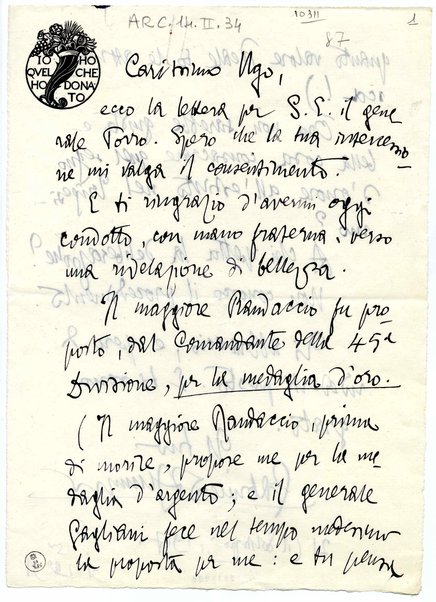 ARC.14.II.34
10311
87
1
IO HO
QUEL CHE
HO DONA
TO
Carissimo Ugo,
ecco la lettera per S. E. il gene
rale Porro. Spero che la tua intercessio-
ne mi valga il consentimento.
E ti ringrazio d'avermi oggi
condotto, con mano fraterna, verso
una rivelazione di bellezza.
Il maggiore Randaccio fu pro
posto, dal Comandante della 45a
Divisione, per la medaglia d'oro.
(Il maggiore Randaccio, prima
di morire, propose me per la me
daglia d'argento; e il generale
Gagliani fece nel tempo medesimo
la proposta per me: e tu pensa